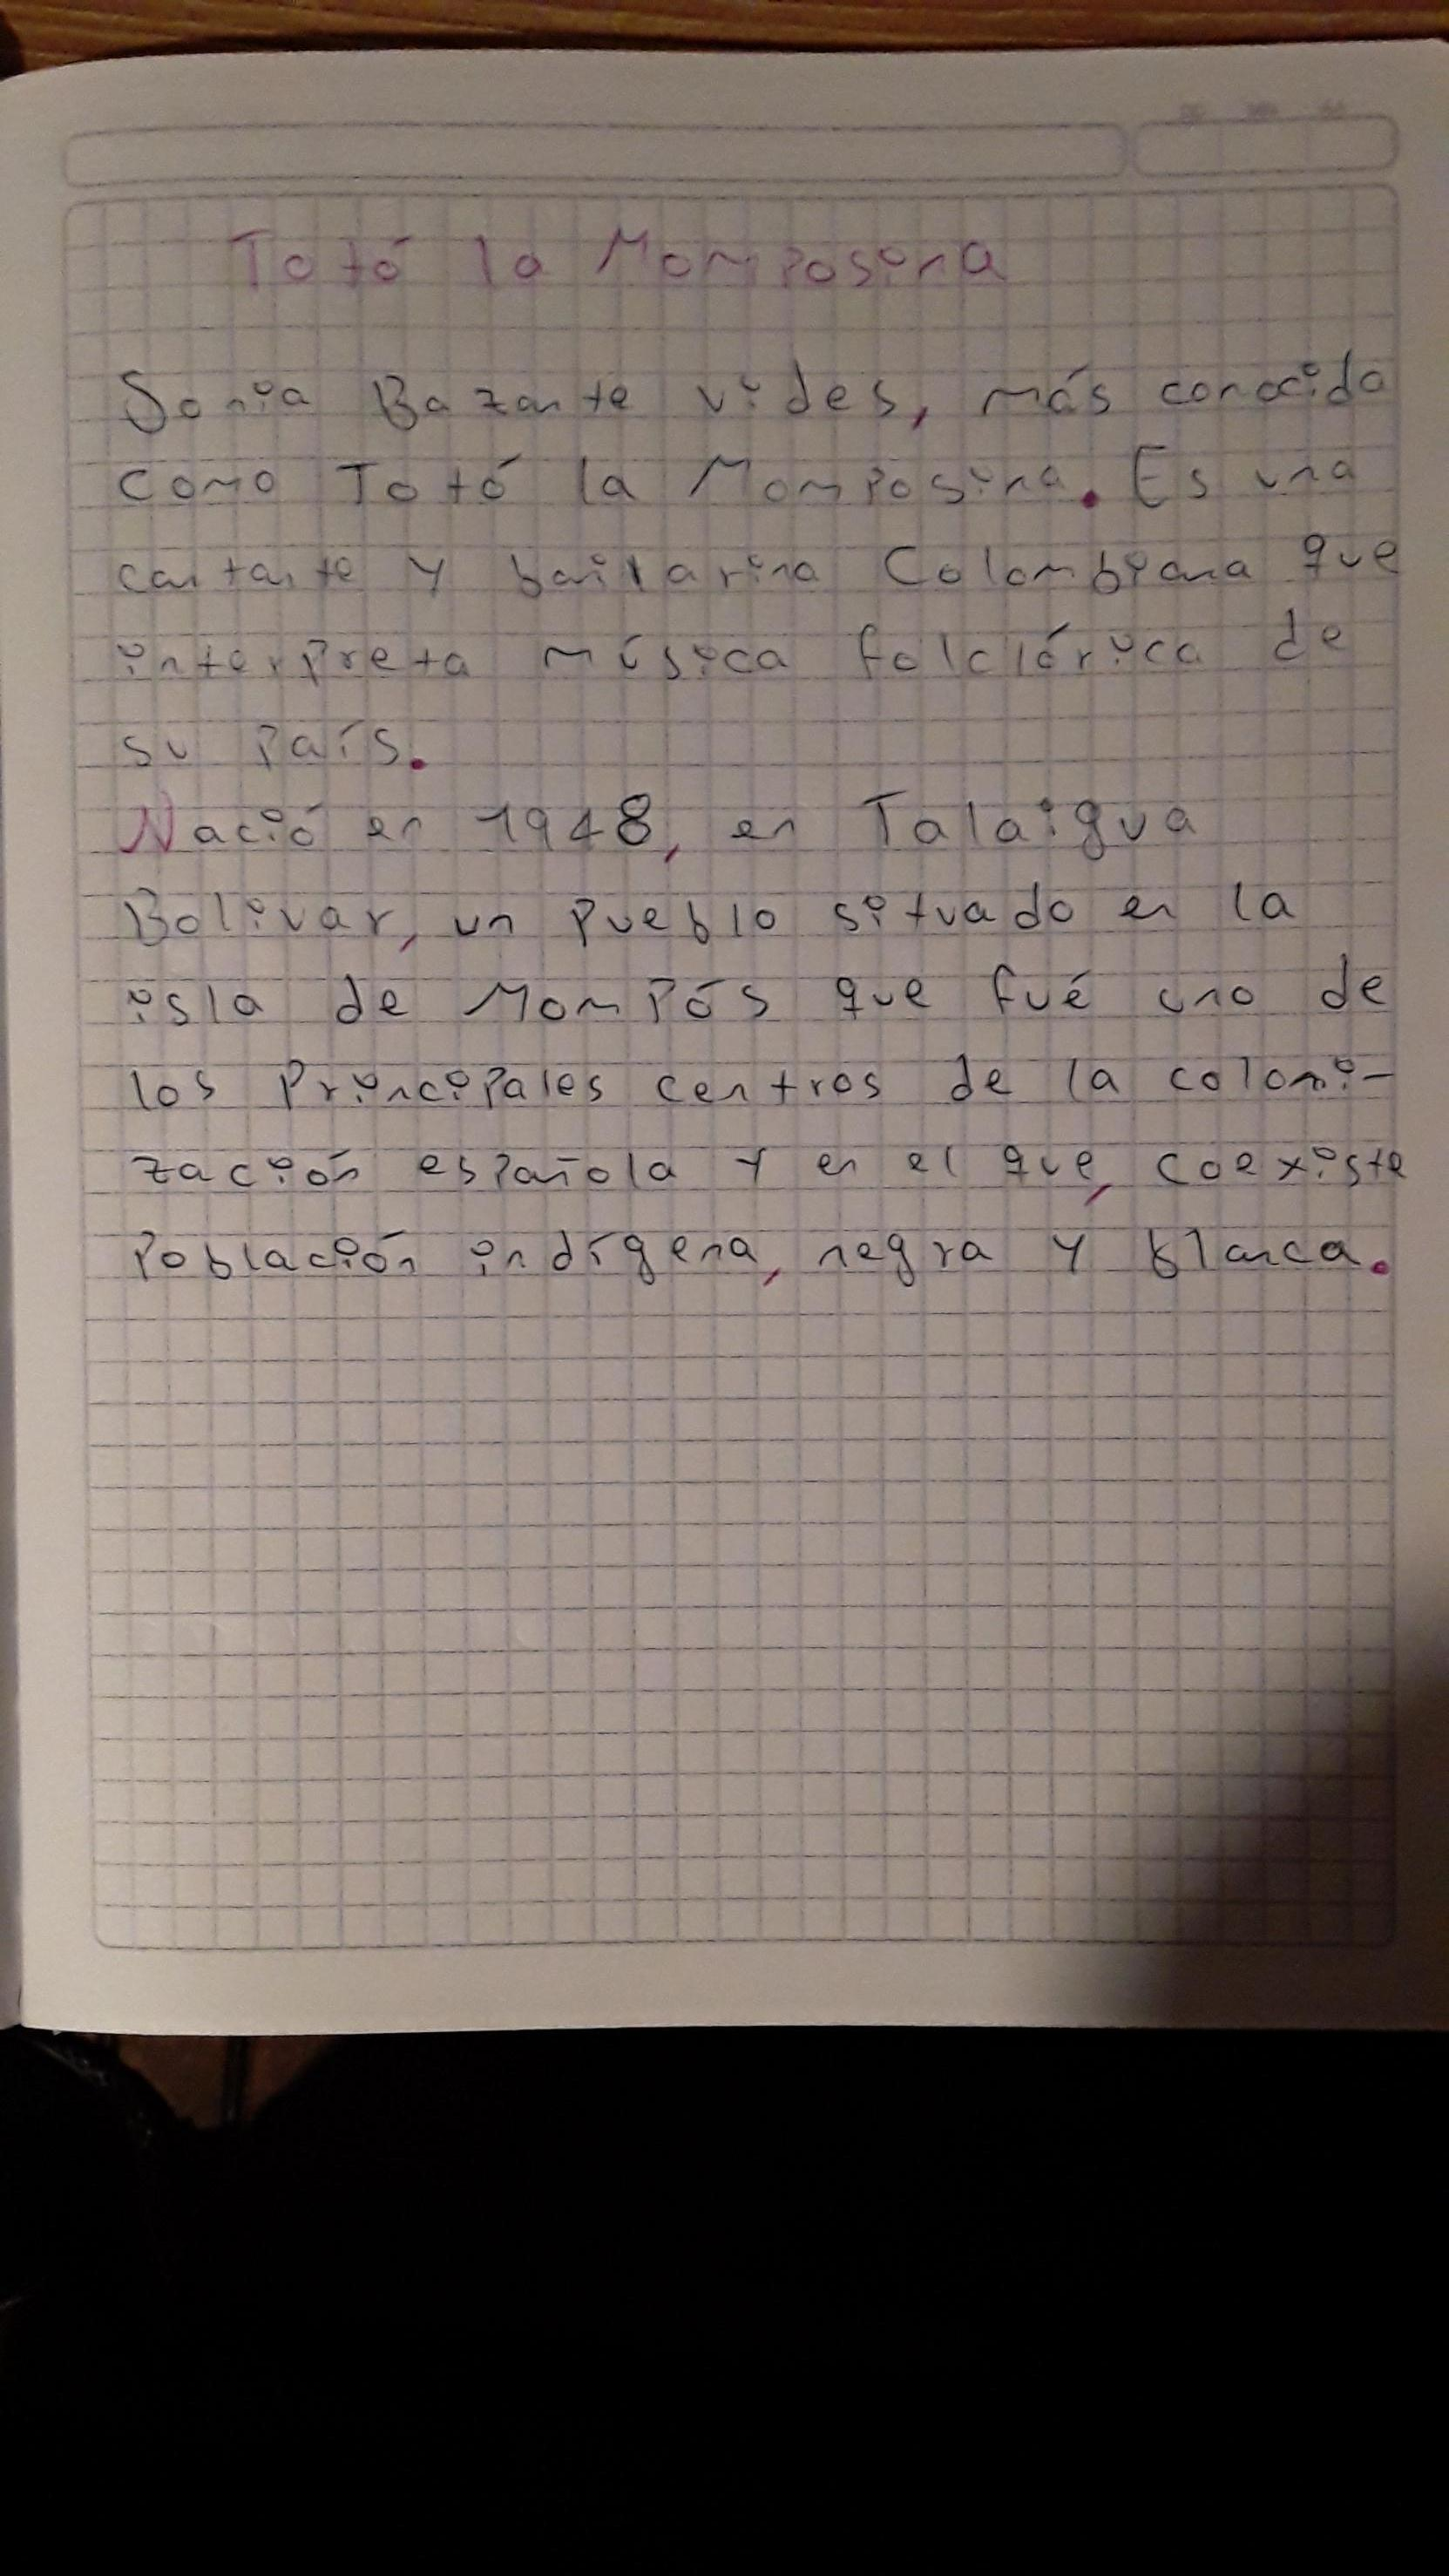 Totó la Momposina
Sonia Bazante vides, más conocida
como Totó la Momposina. Es una
cantante y bailarina Colombiana que
interpreta música folclórica de
su País.
Nació en 1948, en Talaigua
Bolivar, un Pueblo situado en la
isla de MomPós que fué uno de
los PrinciPales centros de la coloni-
zación esPañola y en el que, coexiste
Población indígena, negra y blanca.